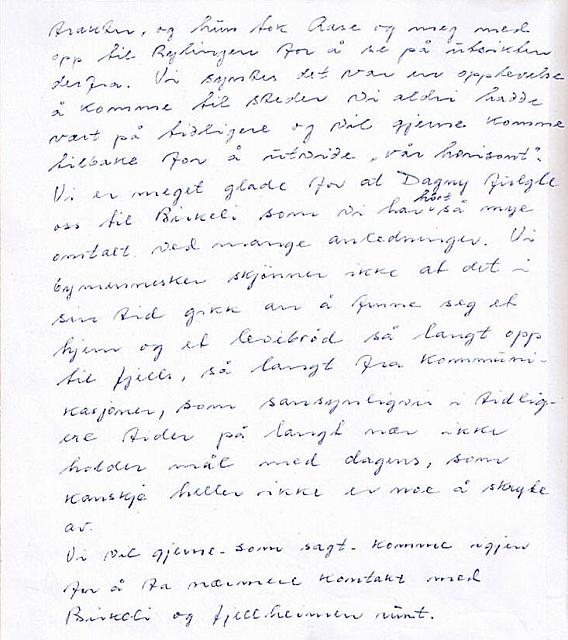 trakten, og hun tok Aase og meg med
opp til Reylingen for å se på utsikten
derfra. Vi syntes det var en opplevelse
å komme til steder vi aldri hadde
vært på tidligere og vil gjerne komme
tilbake for å utvide „vår horisont".
Vi er meget glade for at Dagny fulgte
oss til Birkeli som vi har hørt så mye
omtalt ved mange anledninger. Vi
bymennesker skjønner ikke at det i
sin tid gikk an å finne seg et
hjem og et levebrød så langt opp
til fjells, så langt fra kommuni-
kasjoner, som sansynligvis i tidlig-
ere tider på langt nær ikke
holder mål med dagens, som
kanskje heller ikke er noe å skryte
av.
Vi vil gjerne - som sagt - komme igjen
for å ta nærmere kontakt med
Birkeli og fjellheimen rundt.